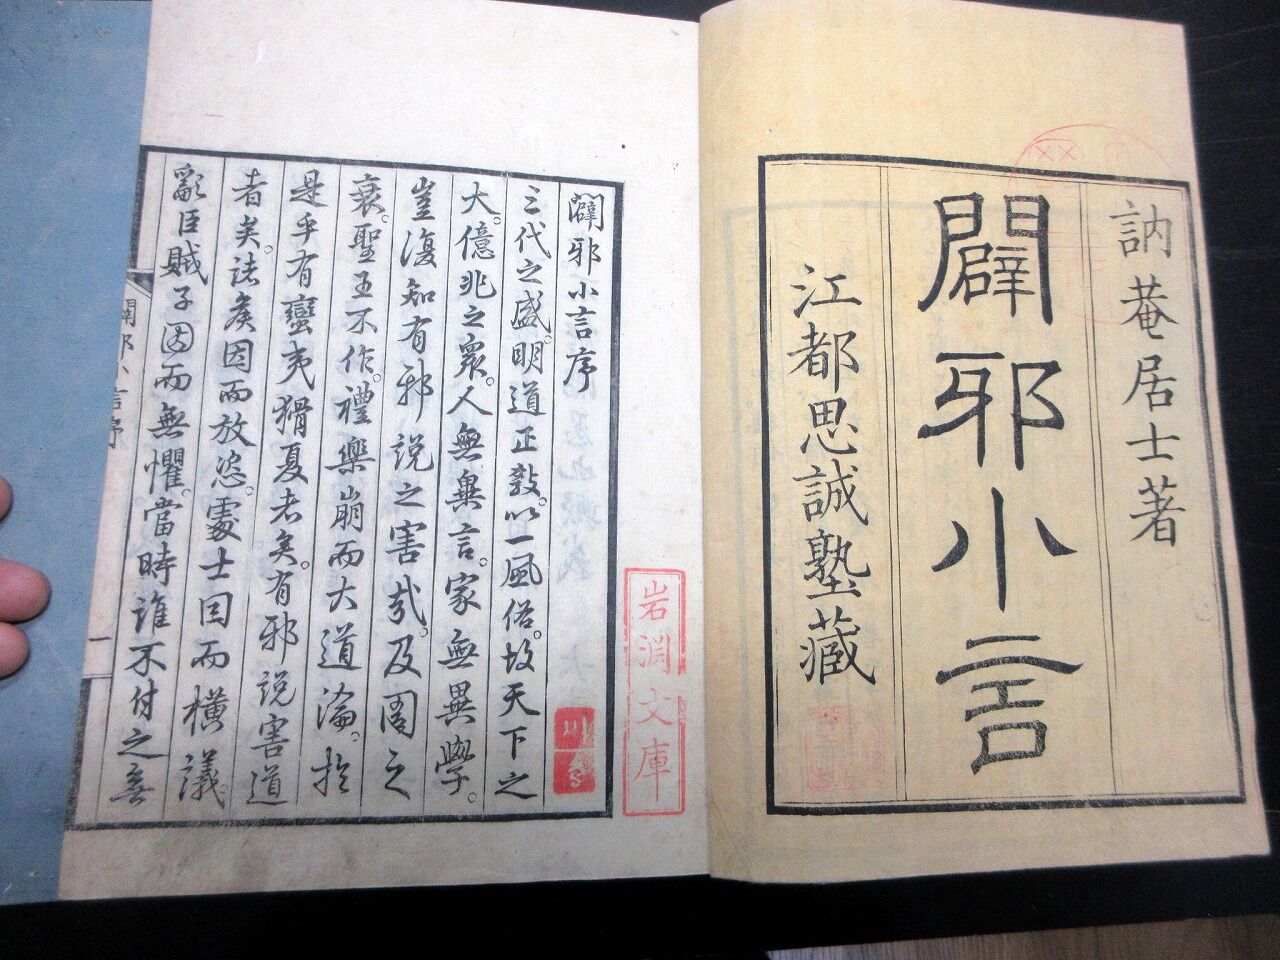 訥菴居士著
闢邪小言
江都思誠塾藏
岩渕文庫
闢邪小言序
三代之盛。明道正教。以一風俗。故天下之
大。億兆之衆。人無異言。家無異學。
豈復知有邪説之害哉。及周之
衰。聖王不作。禮樂崩而大道淪。於
是乎有蠻夷猾夏者矣。有邪説害道
者矣。諸矦因而放恣。處士因而横議。
亂臣賊子因而無懼。當時誰不付之無
闢邪小言序
一